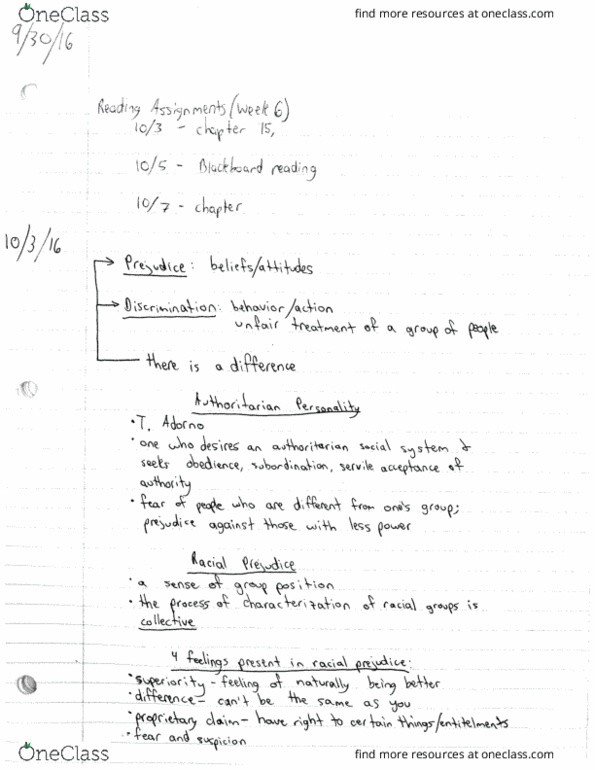 OneClass
find more resources at oneclass.com
9/30/16
Reading Assignments (week 6)
10/3 - chapter 15,
10/5 - Blackboard reading
10/7 - chapter
10/3/16
Prejudice: beliefs/attitudes
Discrimination: behavior/action
unfair treatment of a group of people
there is a difference
Authoritarian Personality
• T. Adorno
• one who desires an authoritarian social system &
seeks obedience, subordination, servile acceptance of
authority
• fear of people who are different from one's group;
prejudice against those with less power
Racial Prejudice
• a sense of group position
• the process of characterization of racial groups is
collective
4 feelings present in racial prejudice:
• superiority - feeling of naturally being better
• difference - can't be the same as you
• proprietary claim - have right to certain things/entitelments
• fear and suspicion
OneClass
find more resources at oneclass.com